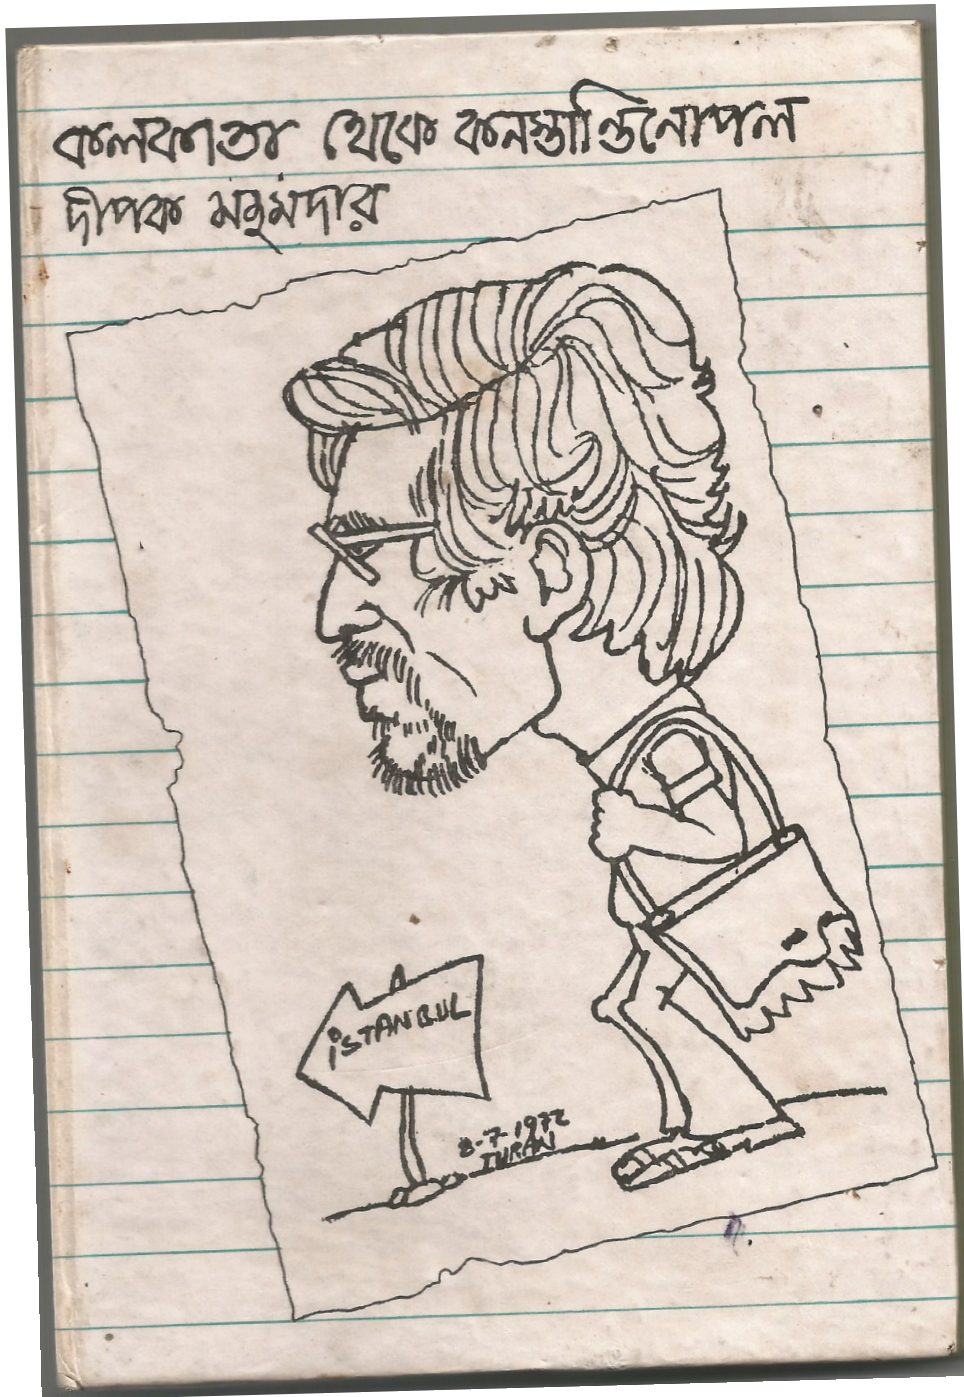 কলকাতা থেকে কনস্তান্তিনোপল
দীপক মজুমদার
iSTANBUL
8-7-1972
TURAN